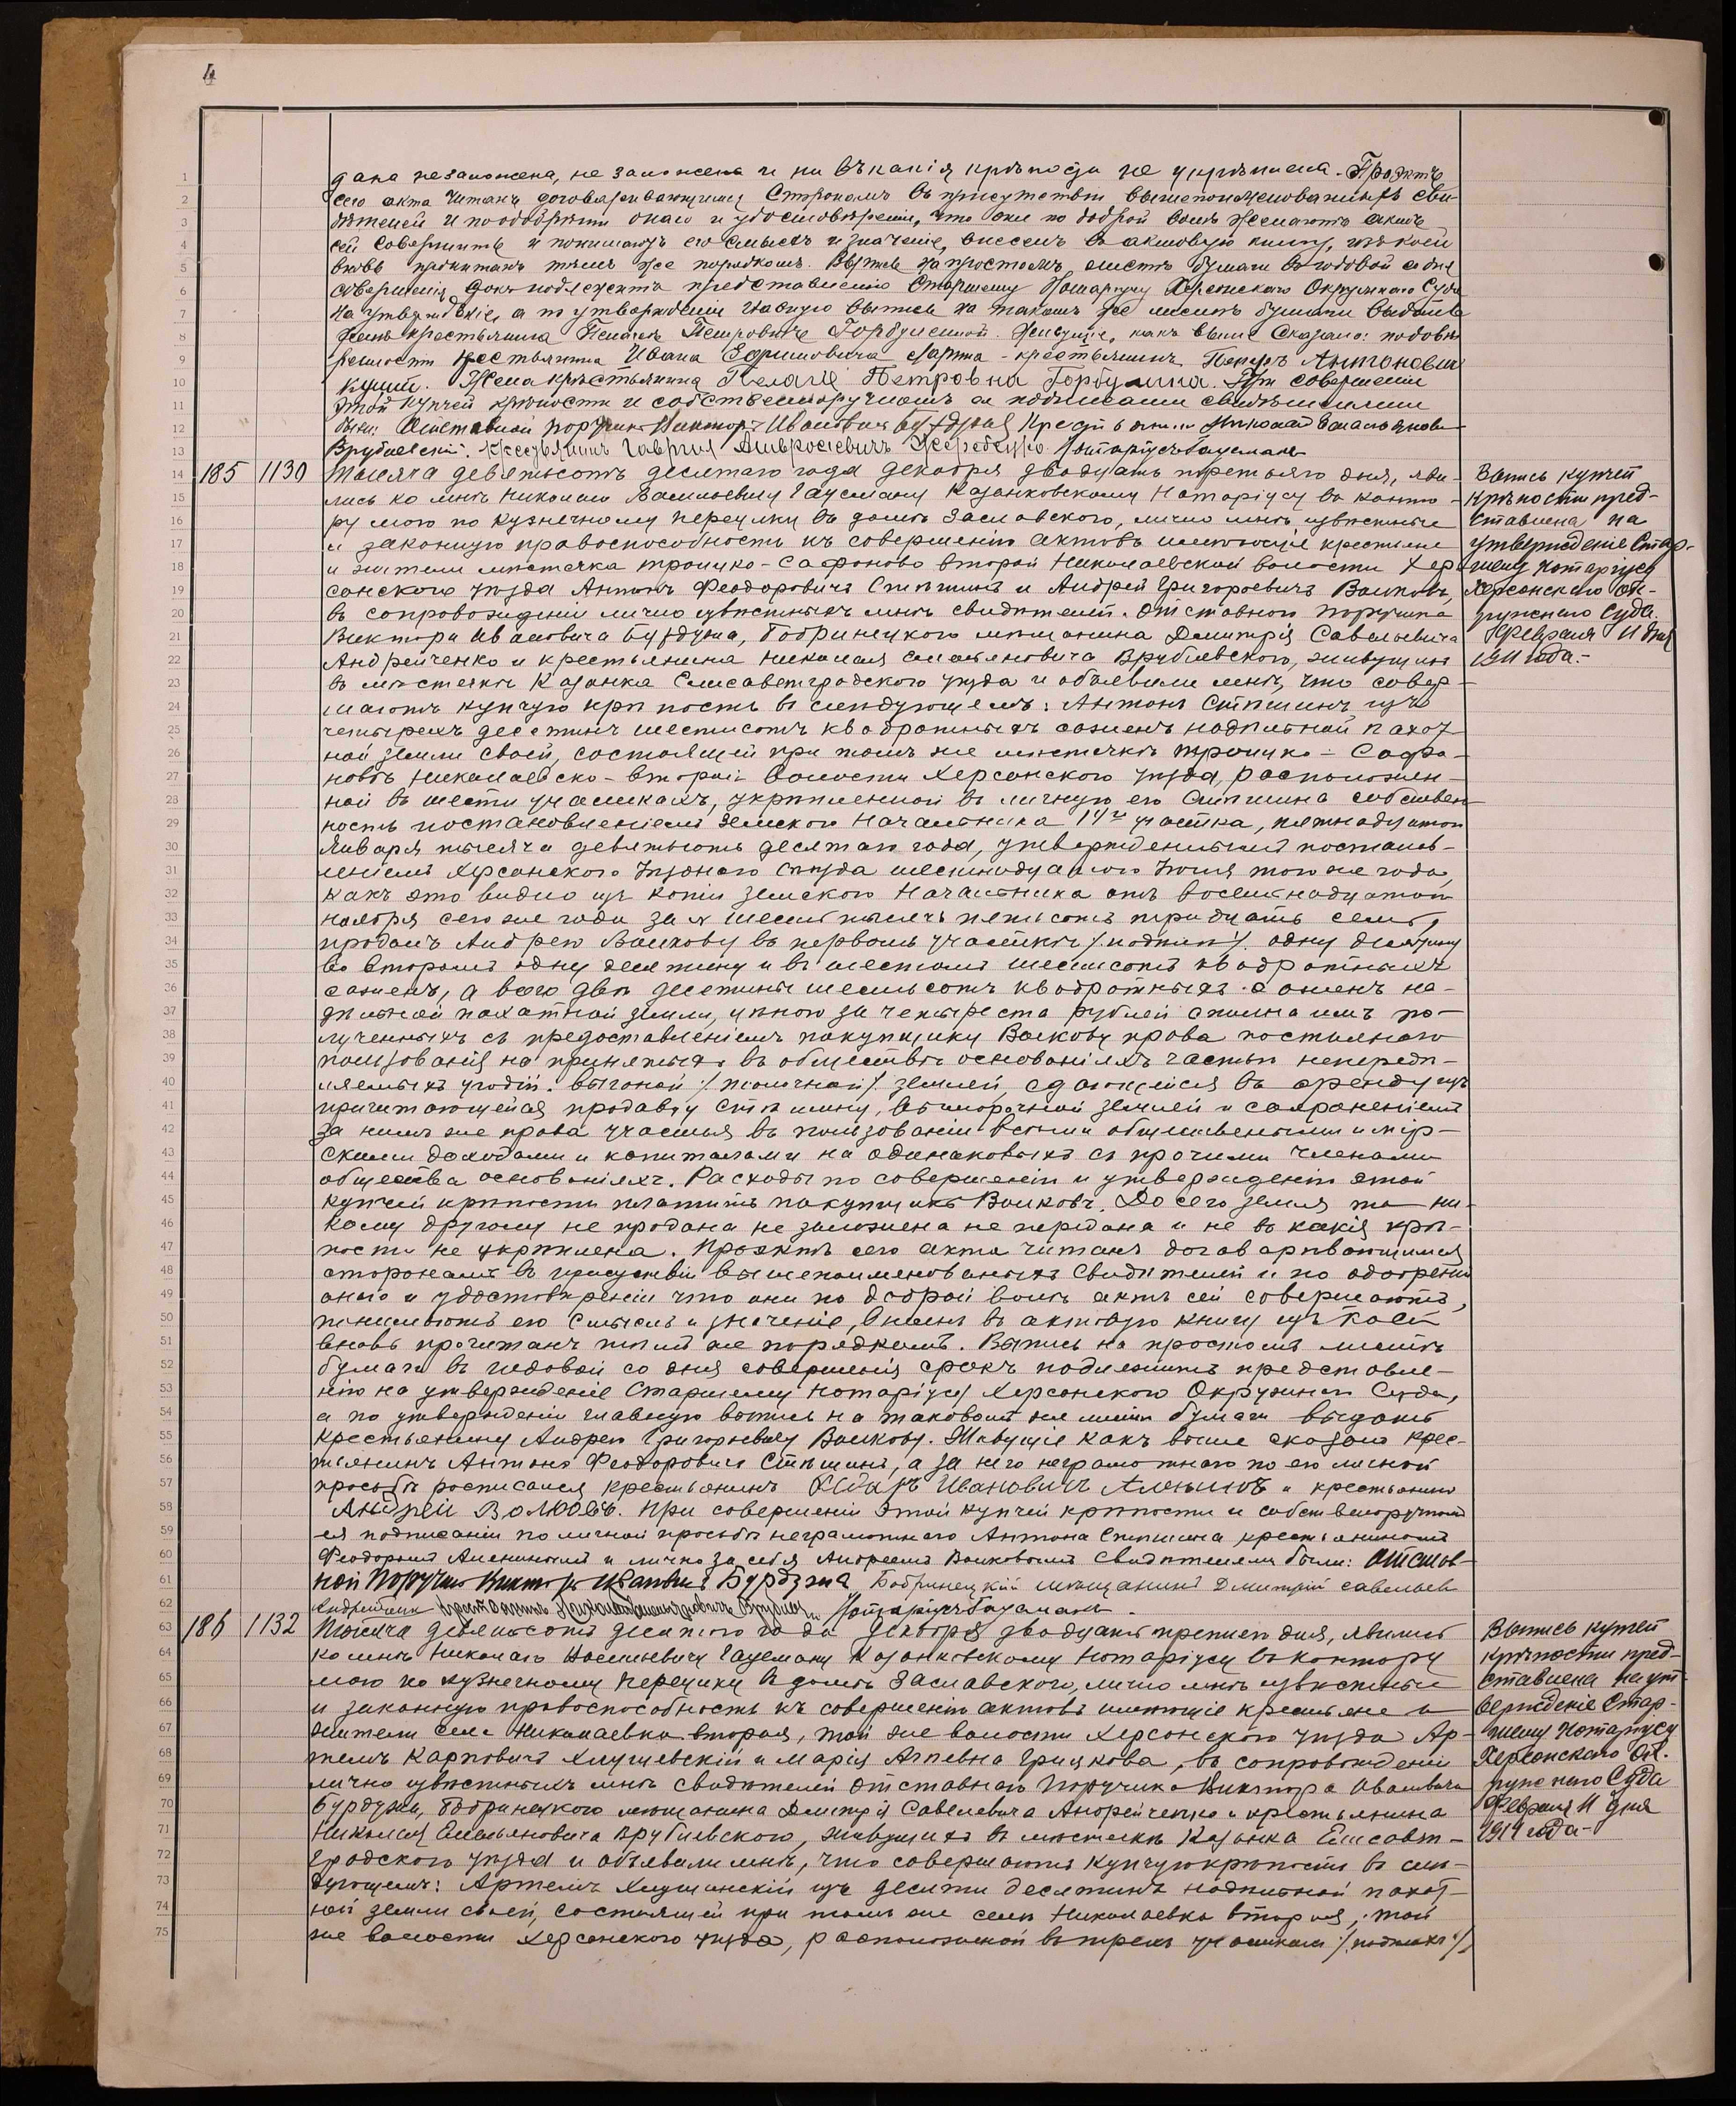 4
дана незаложена, не заложена и ни въ какія крѣпости не укрѣплена. Проэктъ
сего акта читанъ договаривающимся Сторонамъ въ присутствіи вышепоименованныхъ сви-
дѣтелей и по одобреніи онаго и удостовѣреніи, что они по доброй волѣ желаютъ актъ
сей совершить и понимаютъ его смыслъ и значеніе, внесенъ въ актовую книгу, изъ коей
вновь прочитанъ тѣмъ же порядкомъ. Выпись на простомъ листѣ бумаги въ годовой со дня
совершенія срокъ подлежитъ представленію Старшему Нотаріусу Херсонскаго Окружнаго Суда
на утвержденіе, а по утвержденіи главную выпись на такомъ же листѣ бумаги выдать
женѣ крестьянина Пелагеѣ Петровнѣ Горбулиной. Живущіе, какъ выше сказано: по довѣ
ренности крестьянина Ивана Ефимовича крестьянинъ Петръ Антоновичъ
Жена крестьянина Пелагея Петровна Горбулина. При совершеніи
этой купчей крѣпости и собственноручномъ ея подписаніи свидѣтелями
были: Отставной поручикъ Викторъ Ивановичъ Бурдзна Крестьянинъ Николай Емельяновъ
Врублевскій. Крестьянинъ Гавріилъ Амвросіевичъ Нотаріусъ Гаусманъ
185 1130 Тысяча девятьсотъ десятаго года декабря двадцать третьяго дня, яви-
лись ко мнѣ Николаю Васильевичу Гаусману Казанковскому Нотаріусу въ конто-
ру мою по Кузнечному переулку въ домѣ Заславскаго, лично мнѣ извѣстные
и законную правоспособность къ совершенію актовъ имѣющіе крестьяне
и жители мѣстечка Троицко-Сафоново второй Николаевской волости Хер-
сонскаго уѣзда Антонъ Феодоровичъ Стѣпинъ и Андрей Григоровичъ Волковъ,
въ сопровожденіи лично извѣстныхъ мнѣ свидѣтелей. Отставного поручика
Виктора Ивановича Бурдзна, Бобринецкаго мѣщанина Димитрія Савельевича
Андрейченко и крестьянина Николая Емельяновича Врублевскаго, живущихъ
въ мѣстечкѣ Казанка Елисаветградскаго уѣзда и объявили мнѣ, что совер-
шаютъ купчую крѣпость въ слѣдующемъ: Антонъ Стѣпинъ изъ
четырехъ десятинъ шестисотъ квадратныхъ саженъ надѣльной пахот
ной земли своей, состоящей при томъ же мѣстечкѣ Троицко-Сафо-
новѣ Николаевско-второй волости Херсонскаго уѣзда, расположен-
ной въ шести участкахъ, укрѣпленной въ личную его Стѣпина собствен
ность постановленіемъ Земскаго Начальника 14го участка, пятнадцатаго
Января тысяча девятьсотъ десятаго года, утвержденнымъ постанов-
леніемъ Херсонскаго Уѣзднаго Съѣзда шестнадцатаго Іюля того же года,
какъ это видно изъ копіи Земскаго Начальника отъ восемнадцатаго
ноября сего же года за № шесть тысячъ пятьсотъ тридцать семь,
продалъ Андрею Волкову въ первомъ участкѣ одну десятину
во второмъ одну десятину и въ шестомъ шестисотъ квадратныхъ
саженъ, а всего двѣ десятины шестьсотъ квадратныхъ саженъ на-
дѣльной пахатной земли, цѣною за четыреста рублей сполна имъ по-
лученныхъ съ предоставленіемъ покупщику Волкову права постояннаго
пользованія на принятыхъ въ обществѣ основаніяхъ частью непередѣ-
ляемыхъ угодій: выгонной /:толочной:/ землей, сдающейся въ аренду изъ
причитающейся продавцу Стѣпину, выморочной землей и сохраненіемъ
за нимъ же права участья въ пользованіи всѣми общественными и мір-
скими доходами и капиталами на одинаковыхъ съ прочими членами
общества основаніяхъ. Расходы по совершенію и утвержденію этой
купчей крѣпости платитъ покупщикъ Волковъ. До сего земля та ни-
кому другому не продана не заложена не передана и не въ какія крѣ-
пости не укрѣплена. Проэктъ сего акта читанъ договаривающимся
сторонамъ въ присутствіи вышепоименованныхъ свидѣтелей и по одобреніи
онаго и удостовѣреніи что они по доброй волѣ актъ сей совершаютъ,
понимаютъ его смыслъ и значеніе, внесенъ въ актовую книгу изъ коей
вновь прочитанъ тѣмъ же порядкомъ. Выпись на простомъ листѣ
бумаги въ годовой со дня совершенія срокъ подлежитъ представле-
нію на утвержденіе Старшему Нотаріусу Херсонскаго Окружнаго Суда,
а по утвержденіи главную выпись на таковомъ же листѣ бумаги выдать
крестьянину Андрею Григорьевичу Волкову. Живущіе какъ выше сказано крес-
тьянинъ Антонъ Феодоровичъ Стѣпинъ, а за него неграмотнаго по его личной
просьбѣ росписался крестьянинъ Ивановичъ Аленинъ и крестьянинъ
Андрей Волковъ. При совершеніи этой купчей крѣпости и собственоручномъ
ея подписаніи по личной просьбѣ неграмотнаго Антона Стѣпина крестьяниномъ
Феодоромъ Аленинымъ и лично за себя Андреемъ Волковымъ свидѣтелями были: Отстав-
ной Поручикъ Викторъ Ивановичъ Бурдзна Бобринецкій мѣщанинъ Дмитрій Савельев
Андрейченко крестьянинъ Николай Емельяновичъ Врублев Нотаріусъ Гаусманъ.
186 1132 Тысяча девятьсотъ десятаго года декабря двадцать третьяго дня, явились
ко мнѣ Николаю Васильевичу Гаусману Казанковскому Нотаріусу въ контору
мою по Кузнечному переулку въ домѣ Заславскаго, лично мнѣ извѣстные
и законную правоспособность къ совершенію актовъ имѣющіе крестьяне и
жители села Николаевка вторая, той же волости Херсонскаго уѣзда Ар-
темъ Карповичъ и Марія Грицкова, въ сопровожденіи
лично извѣстныхъ мнѣ свидѣтелей отставнаго Поручика Виктора Ивановича
Бурдзна, Бобринецкаго мѣщанина Дмитрія Савелевича Андрейченко и крестьянина
Николая Емельяновича Врублевскаго, живущихъ въ мѣстечкѣ Казанка Елисавет-
градскаго уѣзда и объявили мнѣ, что совершаютъ купчую крѣпость въ слѣ-
дующемъ: Артемъ изъ десяти десятинъ надѣльной пахат-
ной земли своей, состоящей при томъ же селѣ Николаевка вторая, той
же волости Херсонскаго уѣзда, расположенной въ трехъ участкахъ
Выпись купчей
крѣпости пред-
ставлена на
утвержденіе Стар-
шему Нотаріусу
Херсонскаго Ок-
ружнаго Суда
Февраля 11 дня
1911 года.-
Выпись купчей
крѣпости пред-
ставлена на ут-
вержденіе Стар-
шему Нотаріусу
Херсонскаго Ок-
ружнаго Суда
Февраля 11 дня
1911 года-
1
2
3
4
5
6
7
8
9
10
11
12
13
14
15
16
17
18
19
20
21
22
23
24
25
26
27
28
29
30
31
32
33
34
35
36
37
38
39
40
41
42
43
44
45
46
47
48
49
50
51
52
53
54
55
56
57
58
59
60
61
62
63
64
65
66
67
68
69
70
71
72
73
74
75